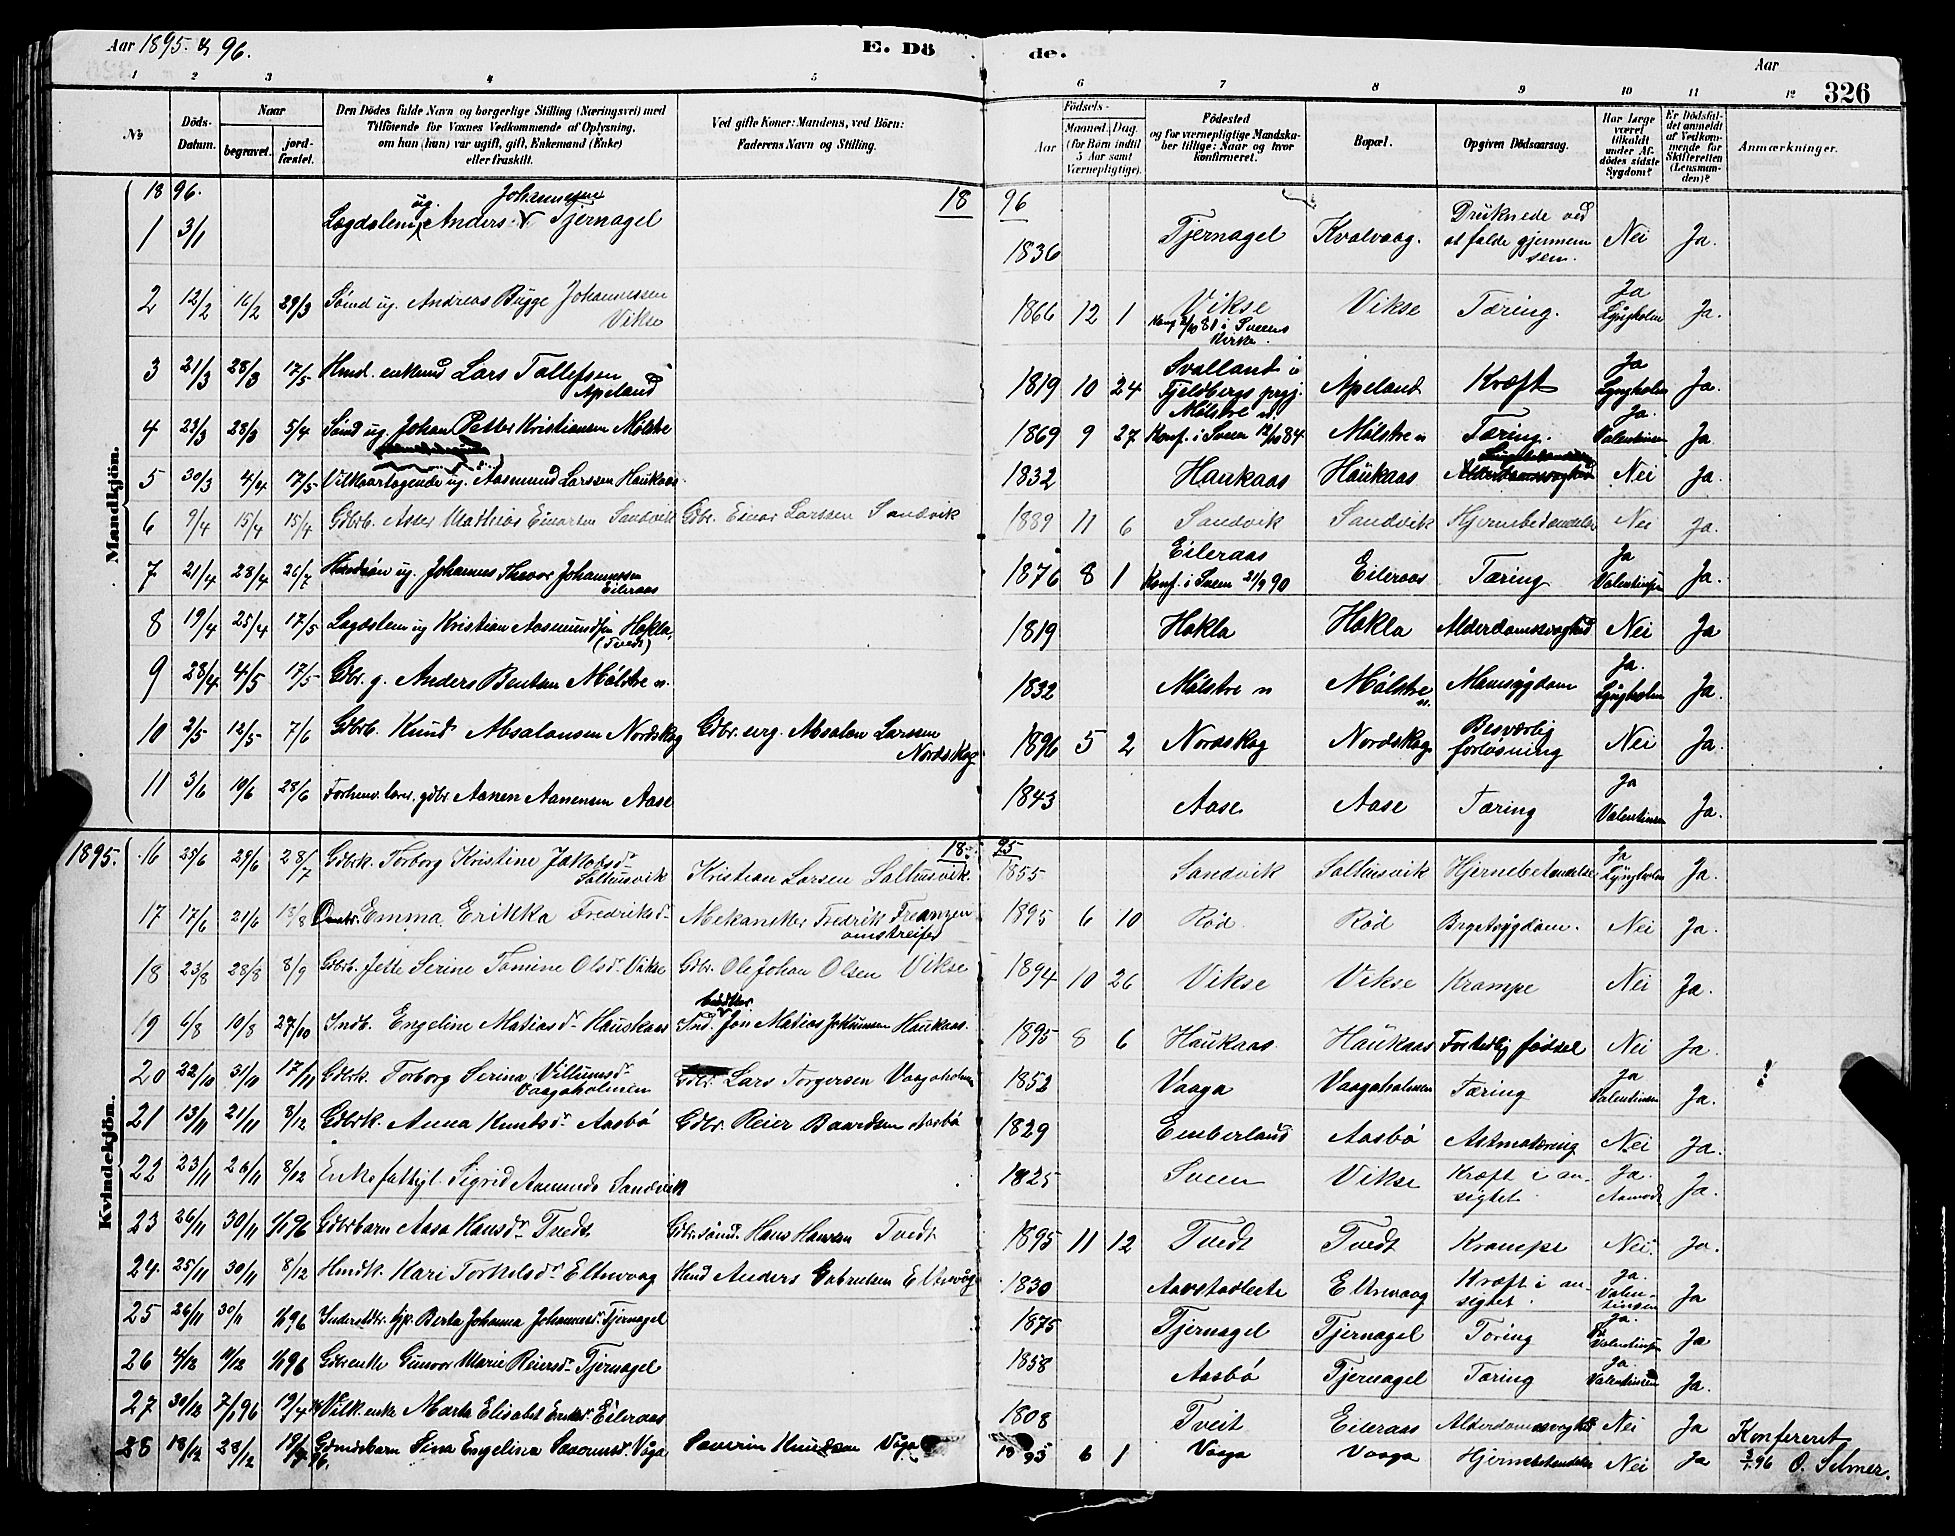 Aar 1895. & 96.
E. Dö
de.
Aar
326
1 2 3 4 5 6 7 8 9 10 11 12
No
Döds-Datum.
Naar
begravet.
jord-fæstet.
Den Dödes fulde Navn og borgerlige Stilling (Næringsvei) med
Tilföiende for Voxnes Vedkommende af Oplysning,
om han (hun) var ugift, gift, Enkemand (Enke)
eller fraskilt.
Ved gifte Koner: Mandens, ved Börn:
Faderens Navn og Stilling.
Födsels-
Aar
Maaned. Dag.
(for Börn indtil
5 Aar samt
Værnepligtige).
Födested
og for værnepligtige Mandska-
ber tillige: Naar og hvor
konfirmeret.
Bopæl.
Opgiven Dödsaarsag.
Har Læge
været
tilkaldt
under Af-
dödes sidste
Sygdom?
Er Dödsfal-
det anmeldt
af Vedkom-
mende for
Skifteretten
(Lensman-
den)?
Anmærkninger.
Mandkjön.
1896.
18 96
1 3/1 Lægdslem ug. Anders Johannessen Tjernagel 1836 Tjernagel Kvalvaag. Druknede ved at falde gjennem isen. Nei Ja.
2 12/2 16/2 29/3 Sönd ug. Andreas Bugge Johannessen Vikse 1866 12 1 Vikse i Sveens Kirke. Vikse Tæring. Ja Lyngholm Ja.
3 21/3 28/3 17/5 Hmd. enkemd Lars Tollefsen Apeland 1819 10 24 Svalland i Fjeldbergs prgj. Apeland Kræft Ja Lyngholm Ja.
4 23/3 28/3 5/4 Sönd ug. Johan Petter Kristiansen Mölstre 1869 9 27 Mölstre n. Konf. i Sveen 12/10 84 Mölstre n Tæring. Ja. Valentinsen Ja
5 30/3 4/4 17/5 Vilkaartagende ug. Aasmund Larssen Haukaas. 1832 Haukaas Haukaas Alderdomssvaghed Nei Ja.
6 9/4 15/4 15/4 Gdbrb. Asser Mathias Einarsen Sandvik Gdbr. Einar Larssen Sandvik 1889 11 6 Sandvik Sandvik Hjernebetændelse Nei Ja.
7 21/4 28/4 26/7 ug. Johannes Thevor Johannessen Eileraas 1876 8 1 Eileraas Konf. i Sveen 21/9 90 Eileraas Tæring Ja Valentinsen Ja.
8 19/4 25/4 17/5 Lægdslem ug Kristian Aasmundsen Hokla, (Tvedt) 1819 Hokla Hokla Alderdomssvaghed Nei Ja
9 28/4 4/5 17/5 Gbr. g. Anders Bentsen Mölstre n. 1832 Mölstre n Mölstre n. Mavesygdom Ja. Lyngholm Ja.
10 2/5 12/5 7/6 Gdbrb. Knud Absalonsen Nordskog Gdbr. Absalon Larssen Nordskog 1896 5 2 Nordskog Nordskog Besværlig forlösning Nei Ja.
11 3/6 10/6 28/6 Forhenv. lærer, gdbr Aanen Aanensen Aase 1843 Aase Aase Tæring Ja Valentinsen Ja.
Kvindekjön.
1895.
18 95
16 23/6 29/6 28/7 Gdbrk. Torborg Kristine Jakobsdr Saltnusvik Kristian Larsen Saltnusvik. 1855 Sandvik Saltnusvik Hjernebetændelse Ja Lyngholm Ja.
17 17/6 21/6 18/8 Emma Erikka Fredriksdr Mekaniker Fredrik Franzen omstreifer 1895 6 10 Röd. Röd Brystsygdom. Nei Ja.
18 23/8 28/8 8/9 Gdbrb. Jette Serine Tomine Olsdr. Vikse Gdbr. Ole Johan Olsen Vikse 1894 10 26 Vikse Vikse Krampe Nei Ja.
19 6/8 10/8 27/10 Indb. Engeline Matiasdr Haukaas Ind. Jon Matias Johannsen Haukaas. 1895 8 6 Haukaas Haukaas Fortidlig födsel Nei Ja.
20 22/10 31/10 17/11 Gdbrk. Torborg Serina Villumsdr. Vaagaholmen Gdbr. Lars Torgersen Vaagaholmen 1852 Vaaga Vaagaholmen Tæring Ja Valentinsen Ja.
21 13/11 21/11 8/12 Gdbrk. Anna Knutsdr Aasbö Gdbr. Reier Baardsen Aasbö 1829 Emberland Aasbö Astmatæring Nei Ja.
22 23/11 26/11 8/12 Enke fattigl. Sigrid Aamunds Sandvik 1825 Sveen Vikse Kræft i ansigtet Ja. Aamodt Ja.
23 26/11 30/11 1/1 96 Gdbrbarn Aasa Hansdr. Tvedt Gdbrsönd. Hans Hansen Tvedt 1895 11 12 Tvedt Tvedt Krampe Nei. Ja.
24. 25/11 30/11 8/12 Hmdk. Kari Torkelsdr Eltnevaag Hmd Anders Gabrielsen Eltnevåg 1830 Aarstadleite Eltnevaag Kræft i ansigtet. Ja. Valentinsen Ja
25 26/11 30/11 1/1 96 Berta Johanna Johannesdr. Tjernagel 1875 Tjernagel Tjernagel Tæring Ja. Valentinsen Ja
26 4/12 11/12 1/1 96 Gdbrenke Gunvor Marie Reiersdr. Tjernagel 1858 Aasbö Tjernagel Tæring Ja. Valentinsen Ja.
27 30/12 7/1 96 19/4 Vilk. enke Marta Elisabet Eileraas 1808 Tveit Eileraas Alderdomssvaghed Nei Ja
28 18/12 28/12 19/4 96. Gdmdsbarn Sina Engelina Severinsdr. Våga Severin Knudsen Våga 1895 6 1 Vaaga Vaaga Hjernebetændelse Nei Ja
Konfereret
3/1 96 O. Selmer.